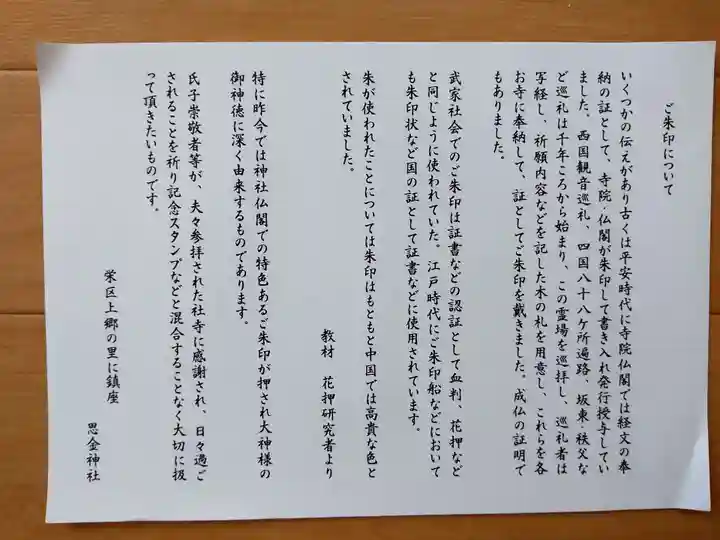 ご朱印について
いくつかの伝えがあり古くは平安時代に寺院仏閣では経文の奉
納の証として、寺院・仏閣が朱印して書き入れ発行授与してい
ました。西国観音巡礼、四国八十八ケ所遍路、坂東・秩父な
ど巡礼は千年ころから始まり、この霊場を巡拝し、巡礼者は
写経し、祈願内容などを記した木の札を用意し、これらを各
お寺に奉納して、証としてご朱印を戴きました。成仏の証明で
もありました。
武家社会でのご朱印は証書などの認証として血判、花押など
と同じように使われていた。江戸時代にご朱印船などにおいて
も朱印状など国の証として証書などに使用されています。
朱が使われたことについては朱印はもともと中国では高貴な色と
されていました。
教材　花押研究者より
特に昨今では神社仏閣での特色あるご朱印が押され大神様の
御神徳に深く由来するものであります。
氏子崇敬者等が、夫々参拝された社寺に感謝され、日々過ご
されることを祈り記念スタンプなどと混合することなく大切に扱
って頂きたいものです。
栄区上郷の里に鎮座　思金神社